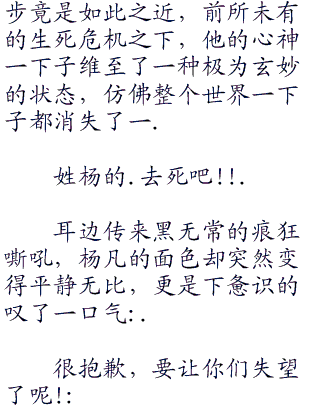 步竟是如此之近，前所未有
的生死危机之下，他的心神
一下子维至了一种极为玄妙
的状态，仿佛整个世界一下
子都消失了一.
姓杨的.去死吧!!.
耳边传来黑无常的痕狂
嘶吼，杨凡的面色却突然变
得平静无比，更是下惫识的
叹了一口气:.
很抱歉，要让你们失望
了呢!: